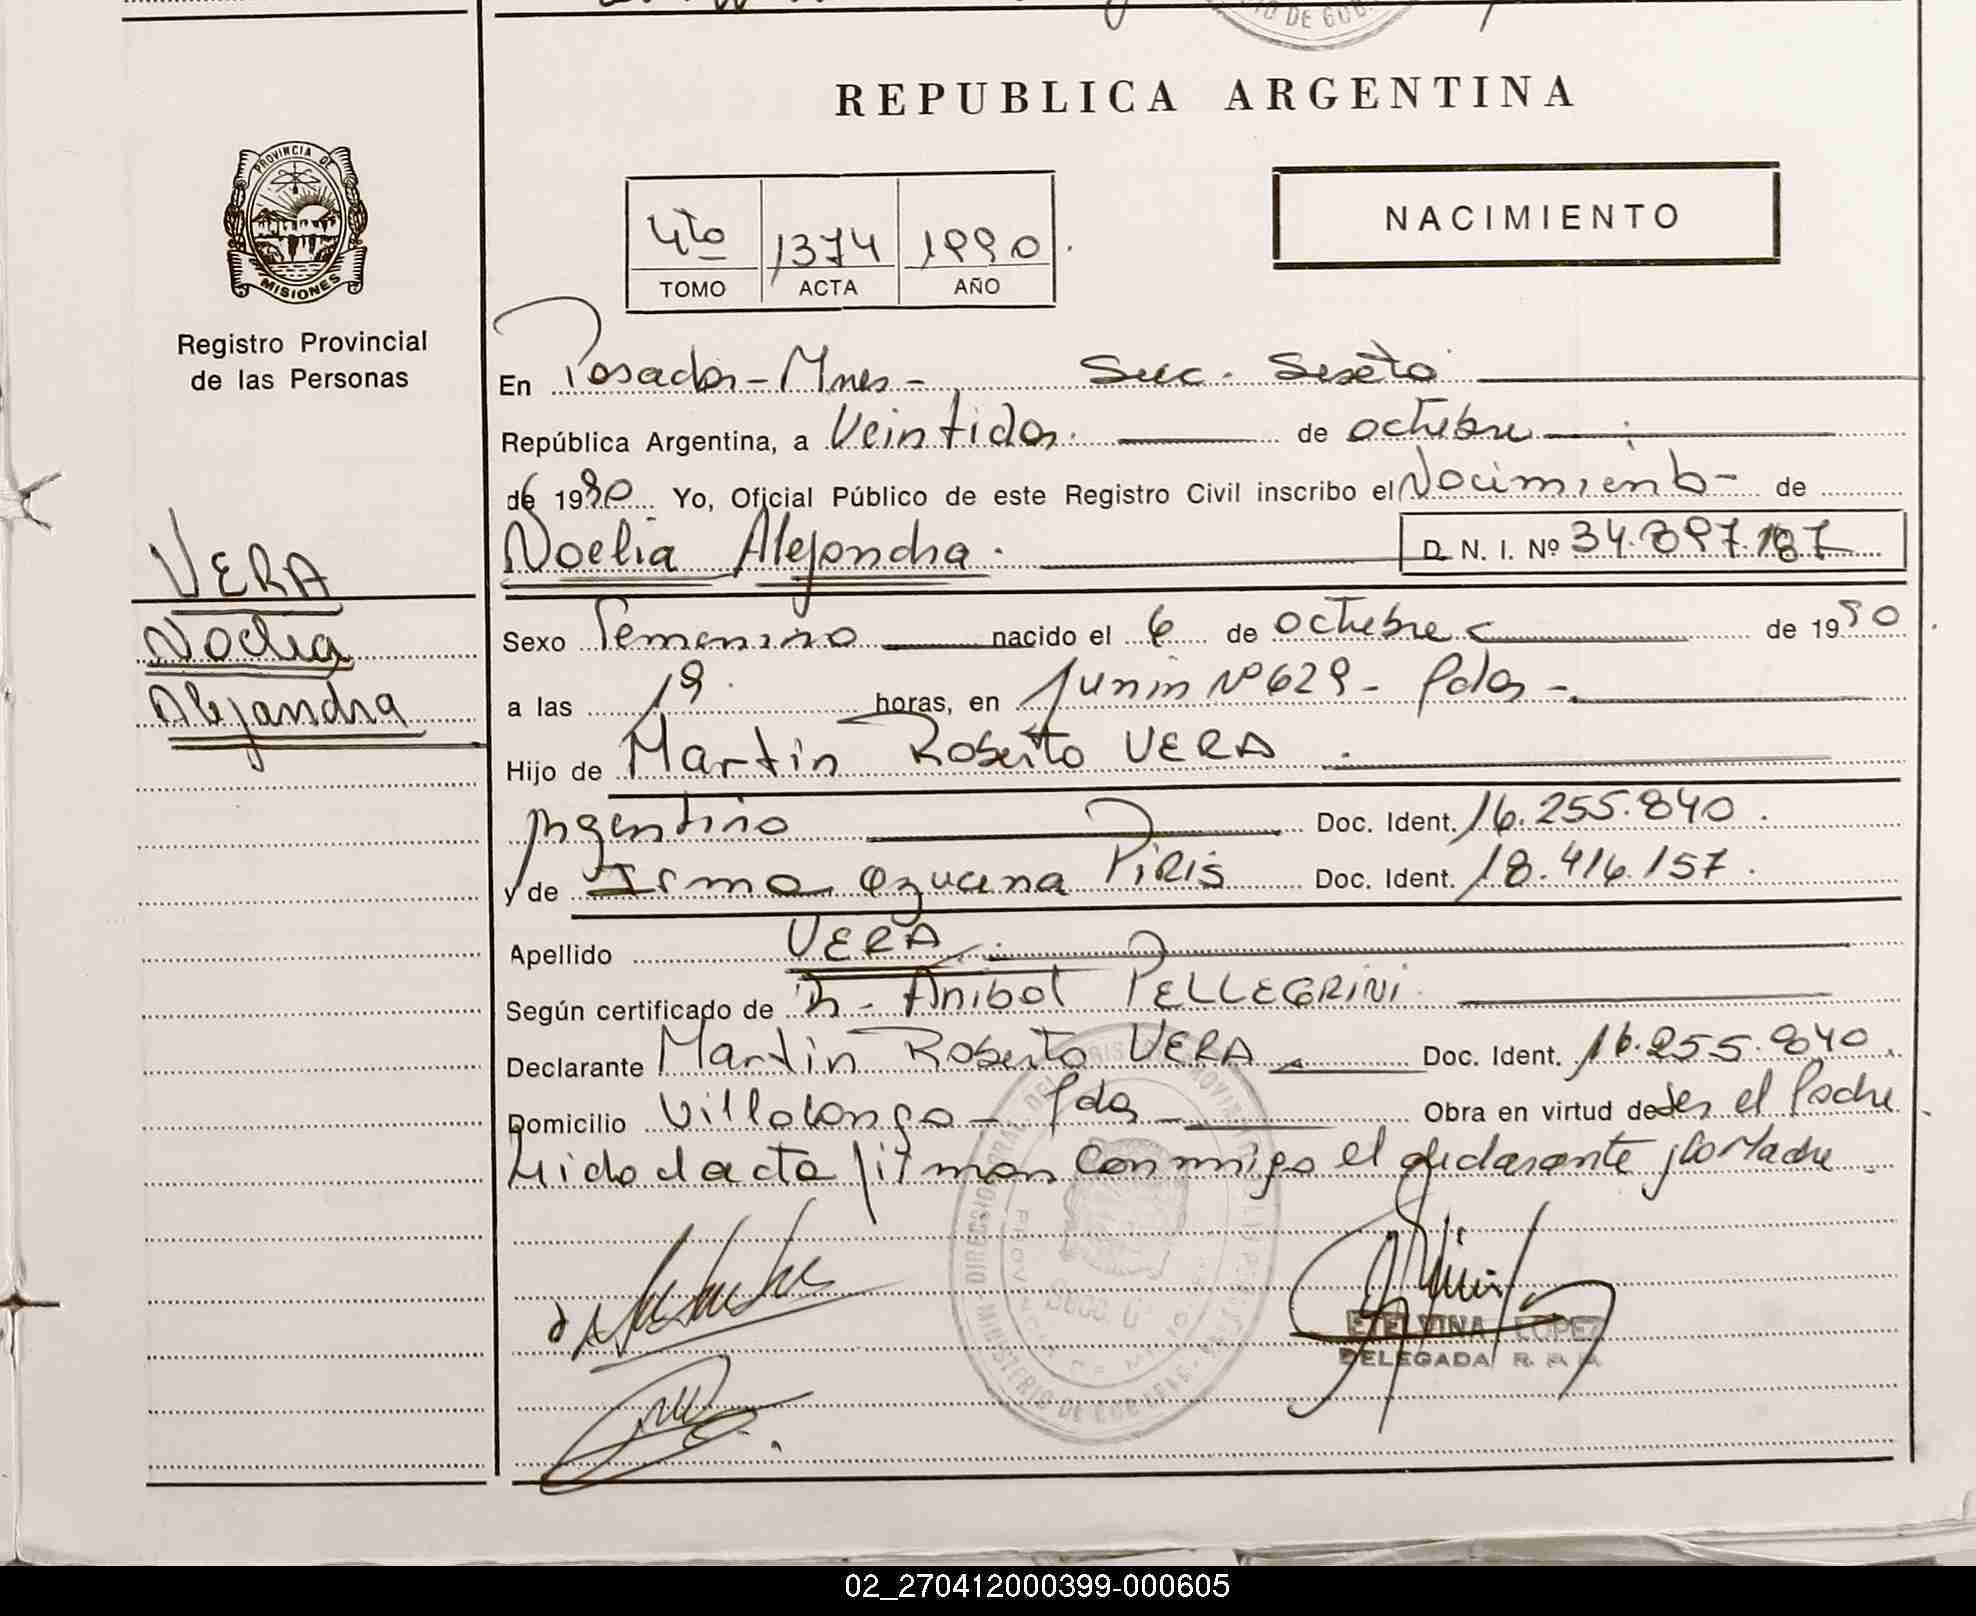 REPUBLICA ARGENTINA
PROVINCIA DE
MISIONES
Registro Provincial
de las Personas
4to 1374 1990
TOMO ACTA AÑO
NACIMIENTO
En Posadas - Mnes - Secc. Sexta
República Argentina, a Veintidos de octubre
de 1990 Yo, Oficial Público de este Registro Civil inscribo el Nacimiento - de
Noelia Alejandra. D. N. I. Nº 34.897.187
VERA
Noelia
Alejandra
Sexo Femenino nacido el 6 de octubre de 1990
a las 19. horas, en Junin Nº 629 - Pdas -
Hijo de Martin Roberto VERA
Argentino Doc. Ident. 16.255.840.
y de Irma Ozucena PIRIS Doc. Ident. 18.416.157.
Apellido VERA
Según certificado de Dr. Anibal PELLEGRINI
Declarante Martin Roberto VERA Doc. Ident. 16.255.840.
Domicilio Villalonga - Pdas - Obra en virtud de ser el Padre
Leida el acta firman conmigo el declarante y la Madre
ETELVINA LOPEZ
DELEGADA R. P. P.
02_270412000399-000605